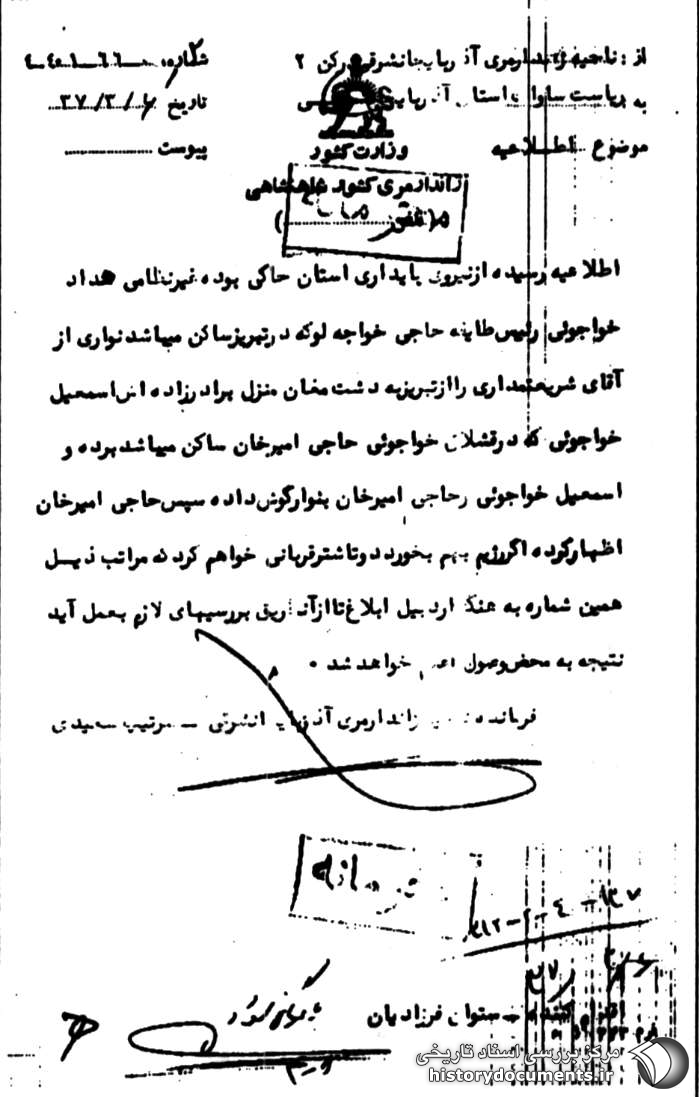 از : ناحیه ژاندارمری آذربایجانشرقی رکن ۲
به ریاست ساواک استان آذربایجان شرقی
موضوع اطلاعیه
شماره
تاریخ ۳۷/۳/۶
پیوست
وزارت کشور
ژاندارمری کشور شاهنشاهی
اطلاعیه رسیده از نیروی پایداری استان حاکی بوده غیرنظامی همداد
خواجوئی رئیس طایفه حاجی خواجه لوکه در تبریز ساکن میباشد نواری از
آقای شریعتمداری را از تبریز به دشت مغان منزل برادرزاده اش اسمعیل
خواجوئی که در قشلاق خواجوئی حاجی امیرخان ساکن میباشد برده و
اسمعیل خواجوئی و حاجی امیرخان بنوار گوش داده سپس حاجی امیرخان
اظهار کرده اگر رژیم بهم بخورد دوتا شتر قربانی خواهم کرد که مراتب ذیل
همین شماره به هنگ اردبیل ابلاغ تا از آن طریق بررسیهای لازم بعمل آید
نتیجه به محض وصول اعلام خواهد شد .
فرمانده ناحیه ژاندارمری آذربایجانشرقی - سرتیپ سعیدی
اقدام کننده - ستوان فرزادیان
مرکز بررسی اسناد تاریخی
historydocuments.ir